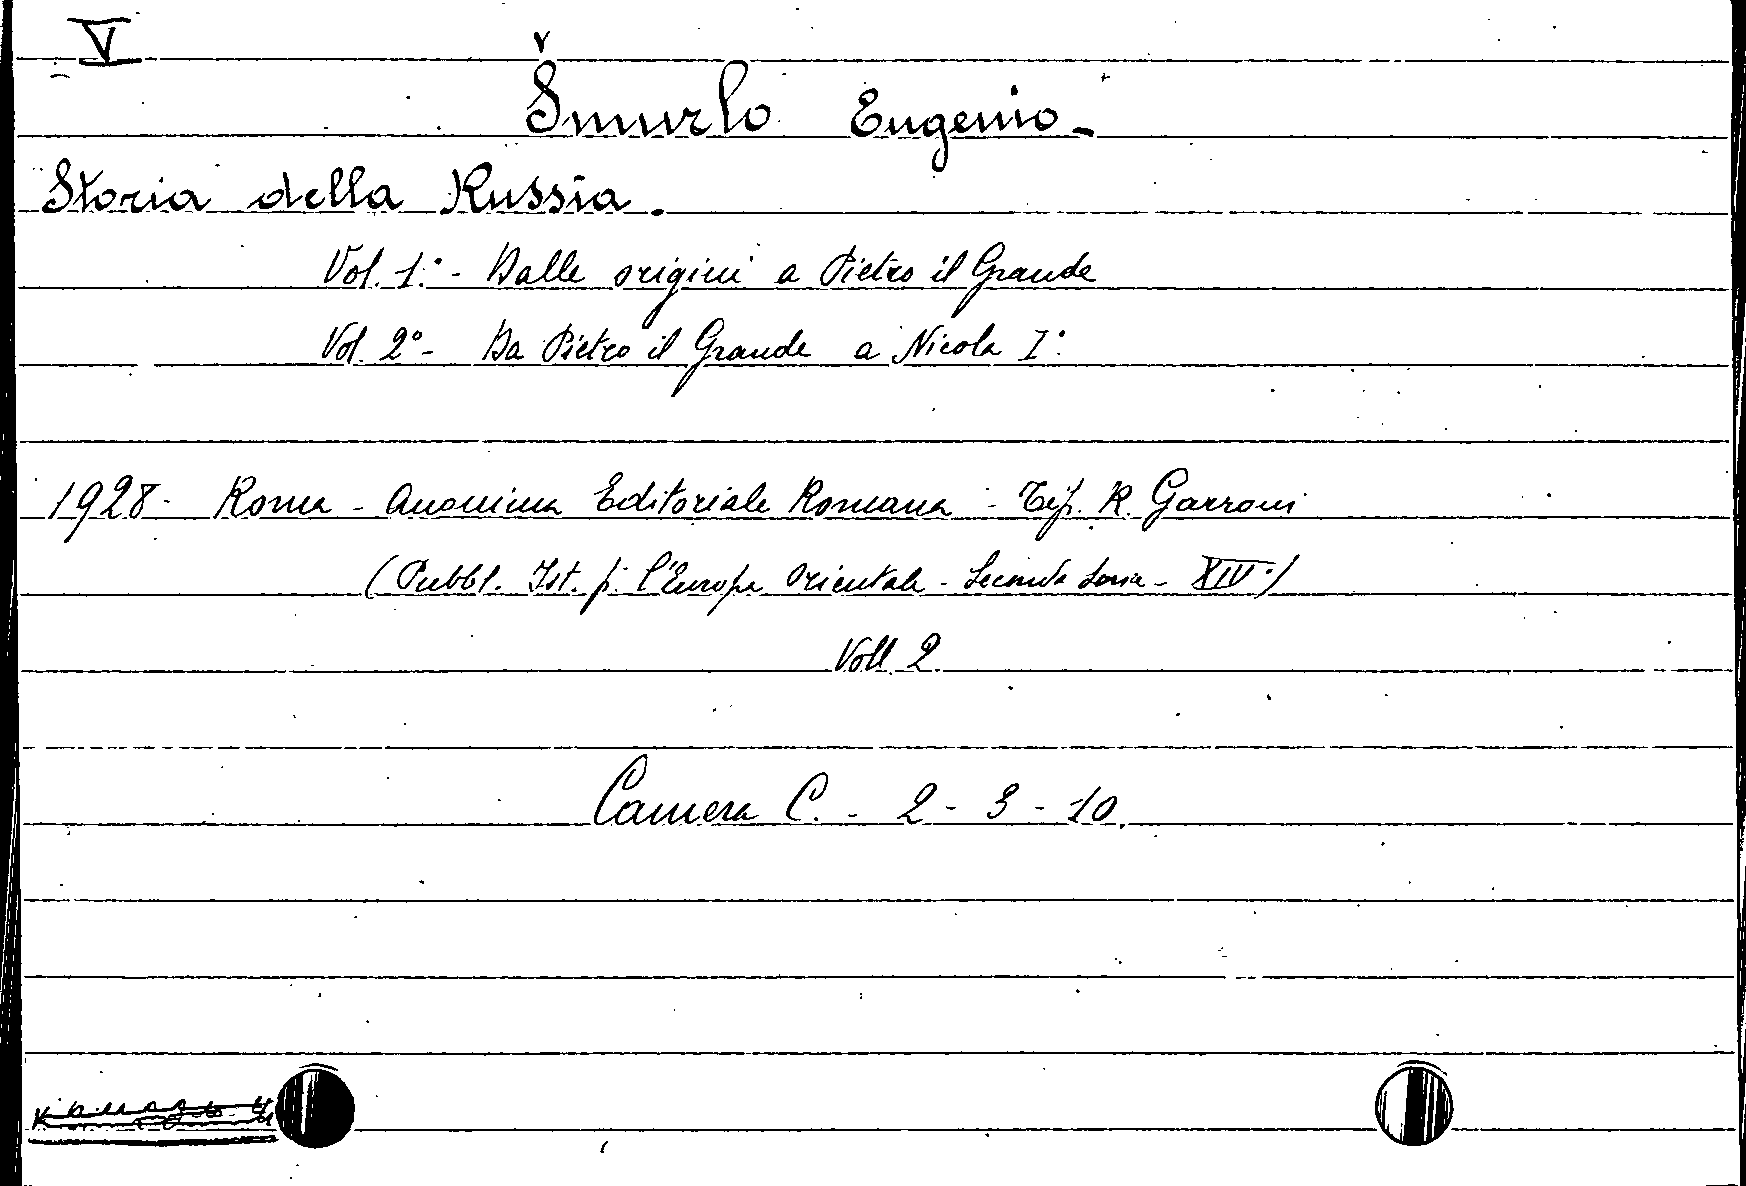 V
Šmurlo Eugenio -
Storia della Russia.
Vol. 1.° - Dalle origini a Pietro il Grande
Vol. 2° - Da Pietro il Grande a Nicola I°.
1928 - Roma - Anonima Editoriale Romana - Tip. R. Garroni
(Pubbl. Ist. p. l'Europa Orientale - Seconda Serie - XIV.)
Voll 2
Camera C. - 2 - 3 - 10.